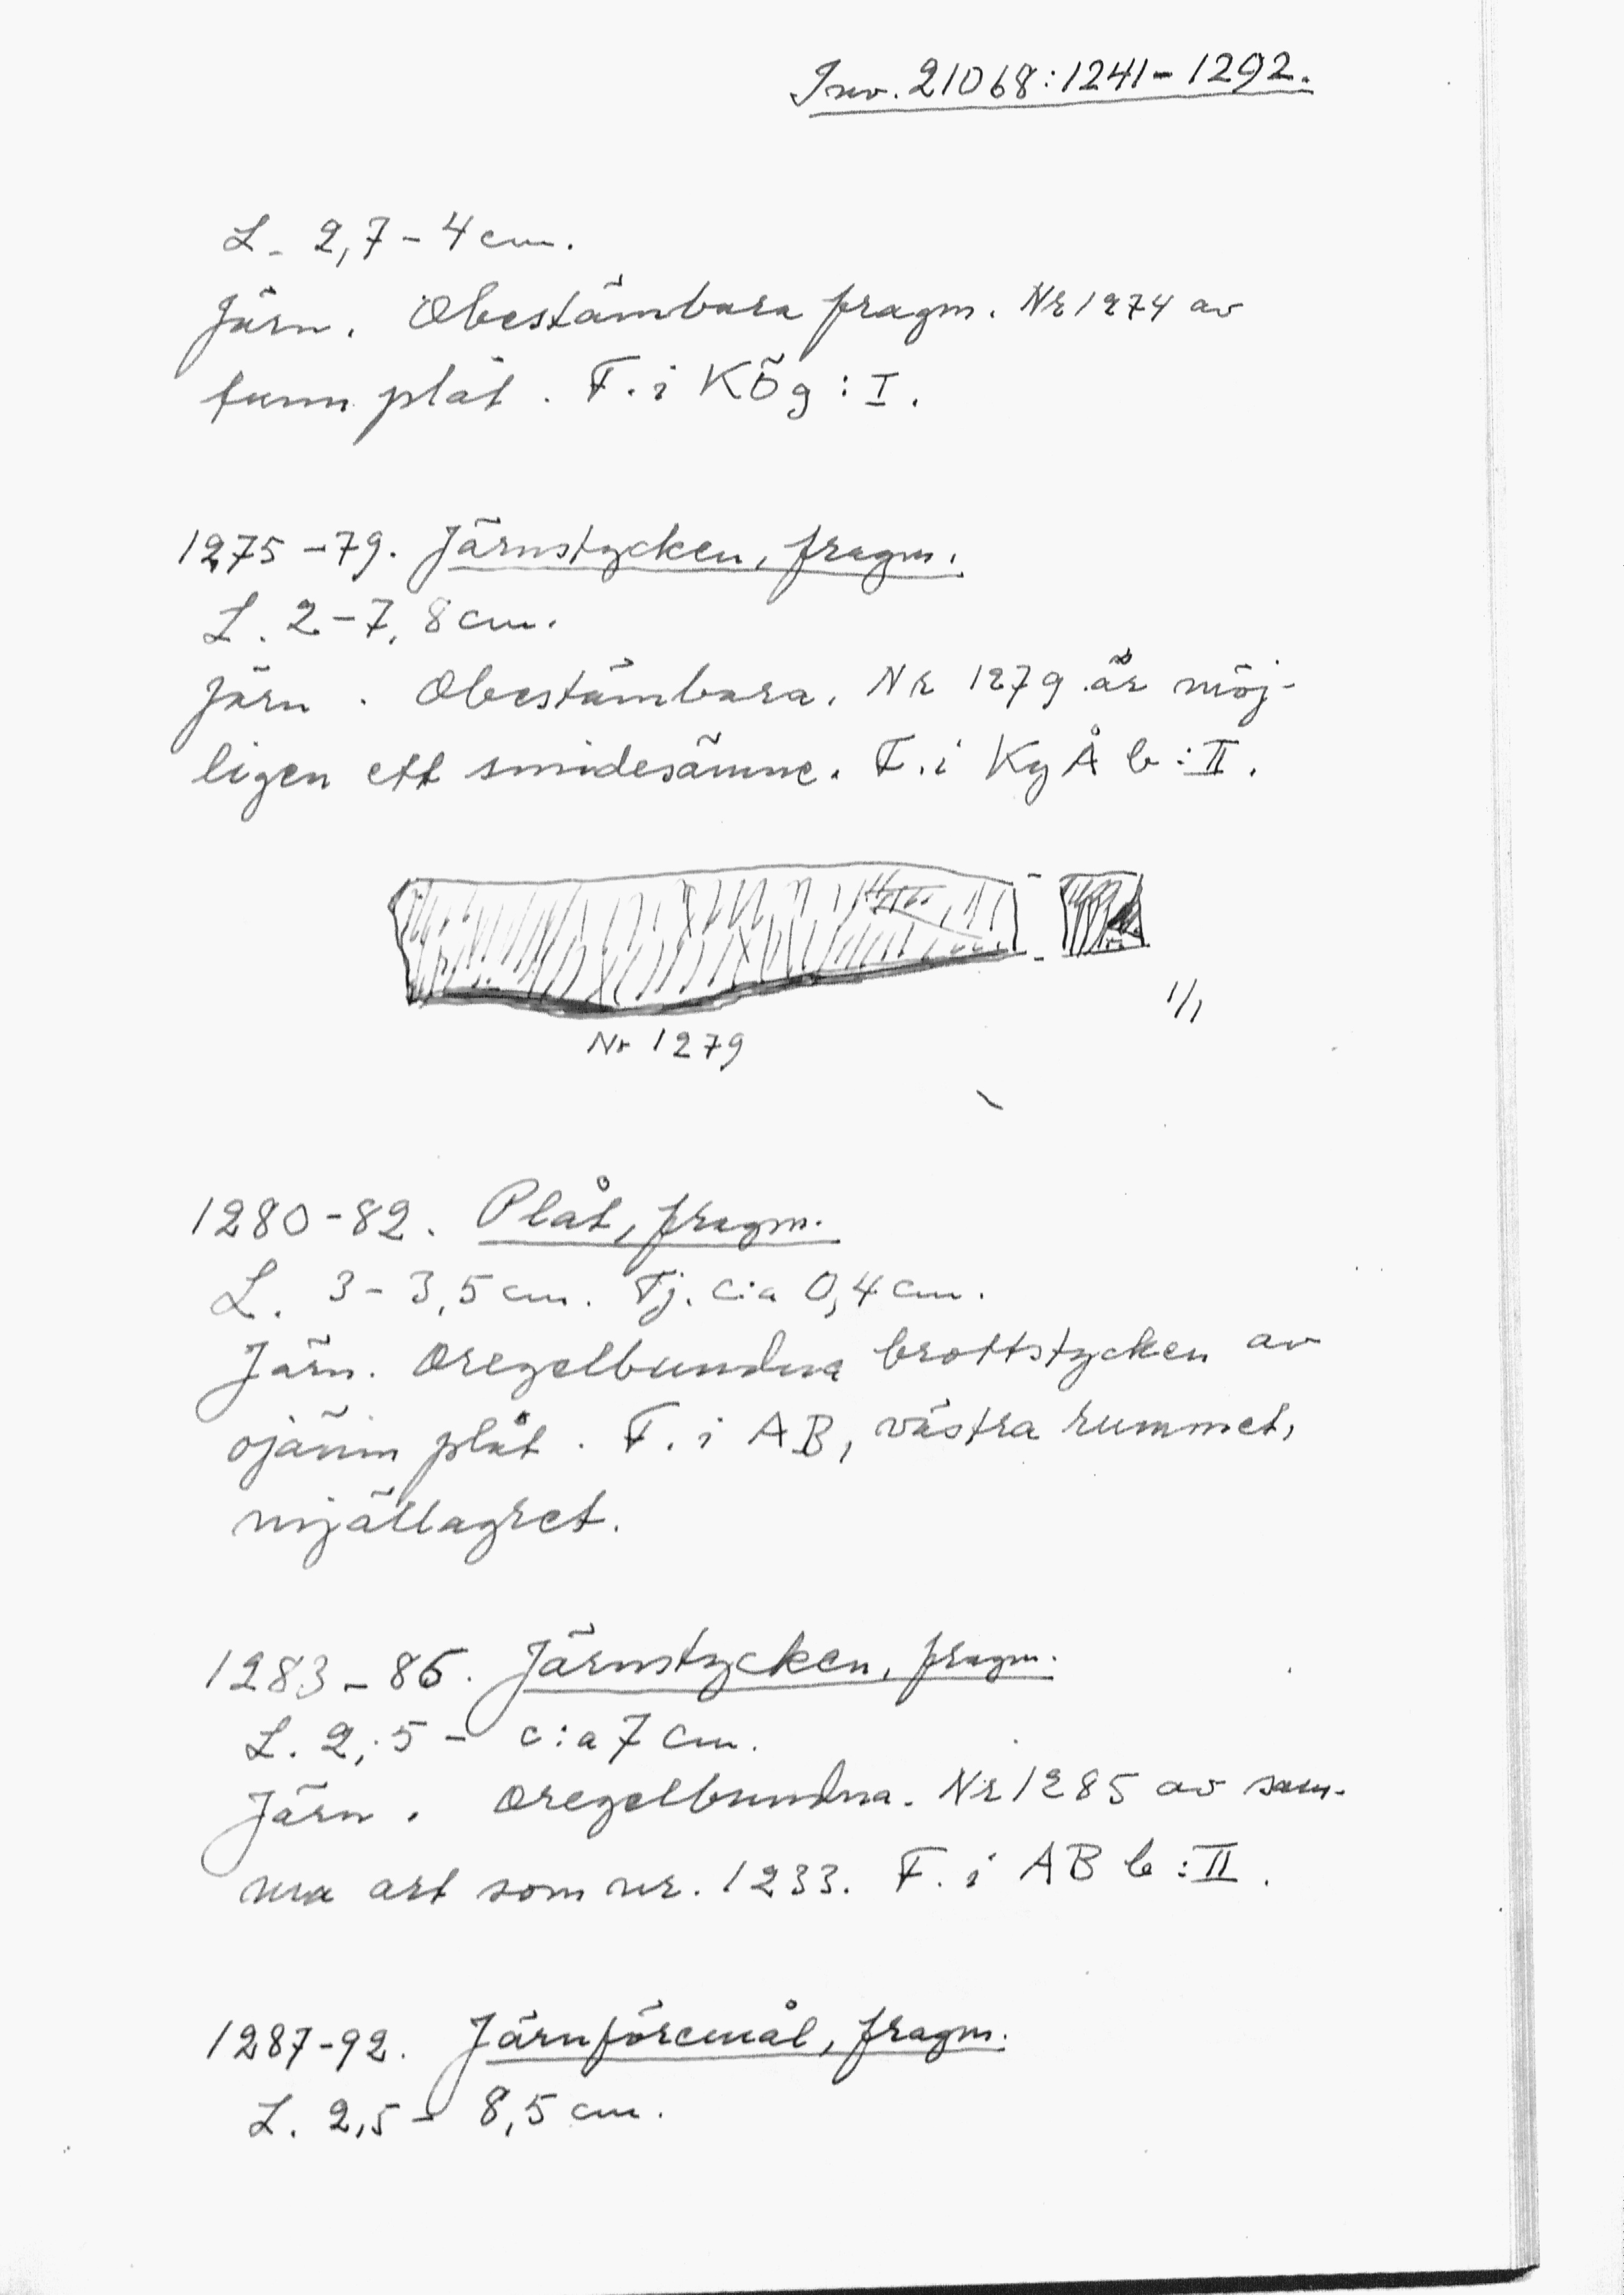 Inv. 21068:1241-1292.
L. 2,7-4 cm.
Järn. Obestämbara fragm. Nr 1274 av
tunn plåt. F. i KÖg:I.
1275-79. Järnstycken, fragm.
L. 2-7,8 cm.
Järn. Obestämbara. Nr 1279 är möj-
ligen ett smidesämne. F. i KgÅb:II.
1/1
Nr 1279
1280-82. Plåt, fragm.
L. 3-3,5 cm. Tj. c:a 0,4 cm.
Järn. Oregelbundna brottstycken av
ojämn plåt. F. i AB, västra rummet,
mjällagret.
1283-86. Järnstycken, fragm.
L. 2,5- c:a 7 cm.
Järn. Oregelbundna. Nr 1285 av sam-
ma art som nr. 1233. F. i ABb:II.
1287-92. Järnföremål, fragm.
L. 2,5-8,5 cm.